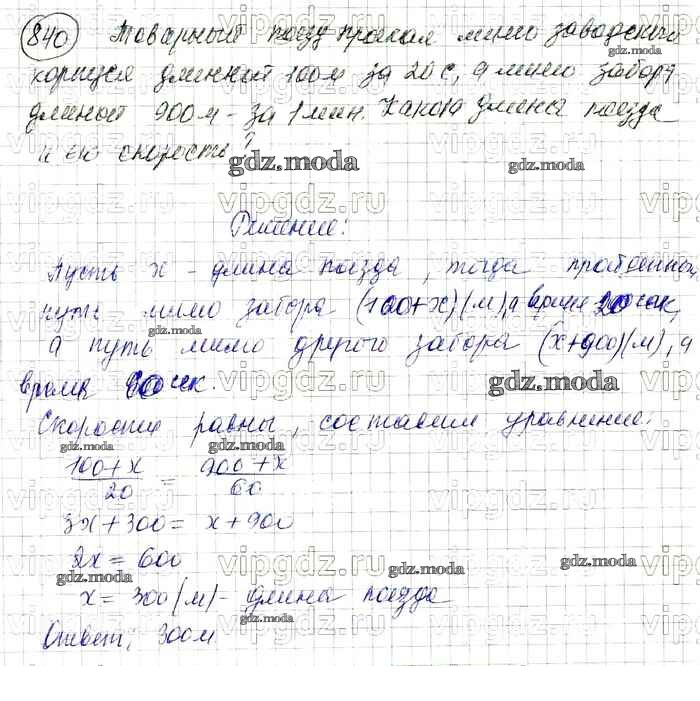 840 Товарный поезд проехал мимо заводского
корпуса длинной 100м за 20с, а мимо забора
длиной 900м - за 1 мин. Какова длина поезда
и его скорость?
gdz.moda
Решение:
Пусть х - длина поезда, тогда пройденный
путь мимо забора (100+х)(м), а время 20 сек,
а путь мимо другого забора (х+900)(м), а
время 60 сек.
gdz.moda
Скорости равны, составим уравнение:
100+х / 20 = 900+х / 60
3х+300 = х+900
2х = 600
х = 300(м) - длина поезда
Ответ: 300м
gdz.moda
vipgdz.ru